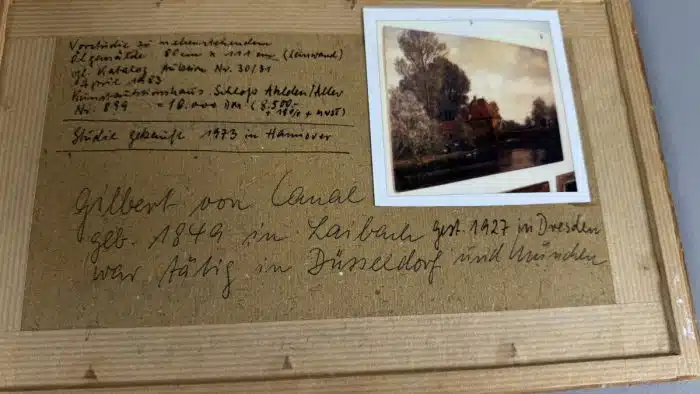 Vorstudie zu nebenstehendem
Ölgemälde 80 cm x 111 cm (Leinwand)
vgl. Katalog Auktion Nr. 30/31
April 1983
Kunstauktionshaus Schloß Ahlden/Aller
Nr. 899 = 10.000 DM (8.500,-
+ 18% + MwSt)
Studie gekauft 1973 in Hannover
Gilbert von Canal
geb. 1849 in Laibach gest. 1927 in Dresden
war tätig in Düsseldorf und München